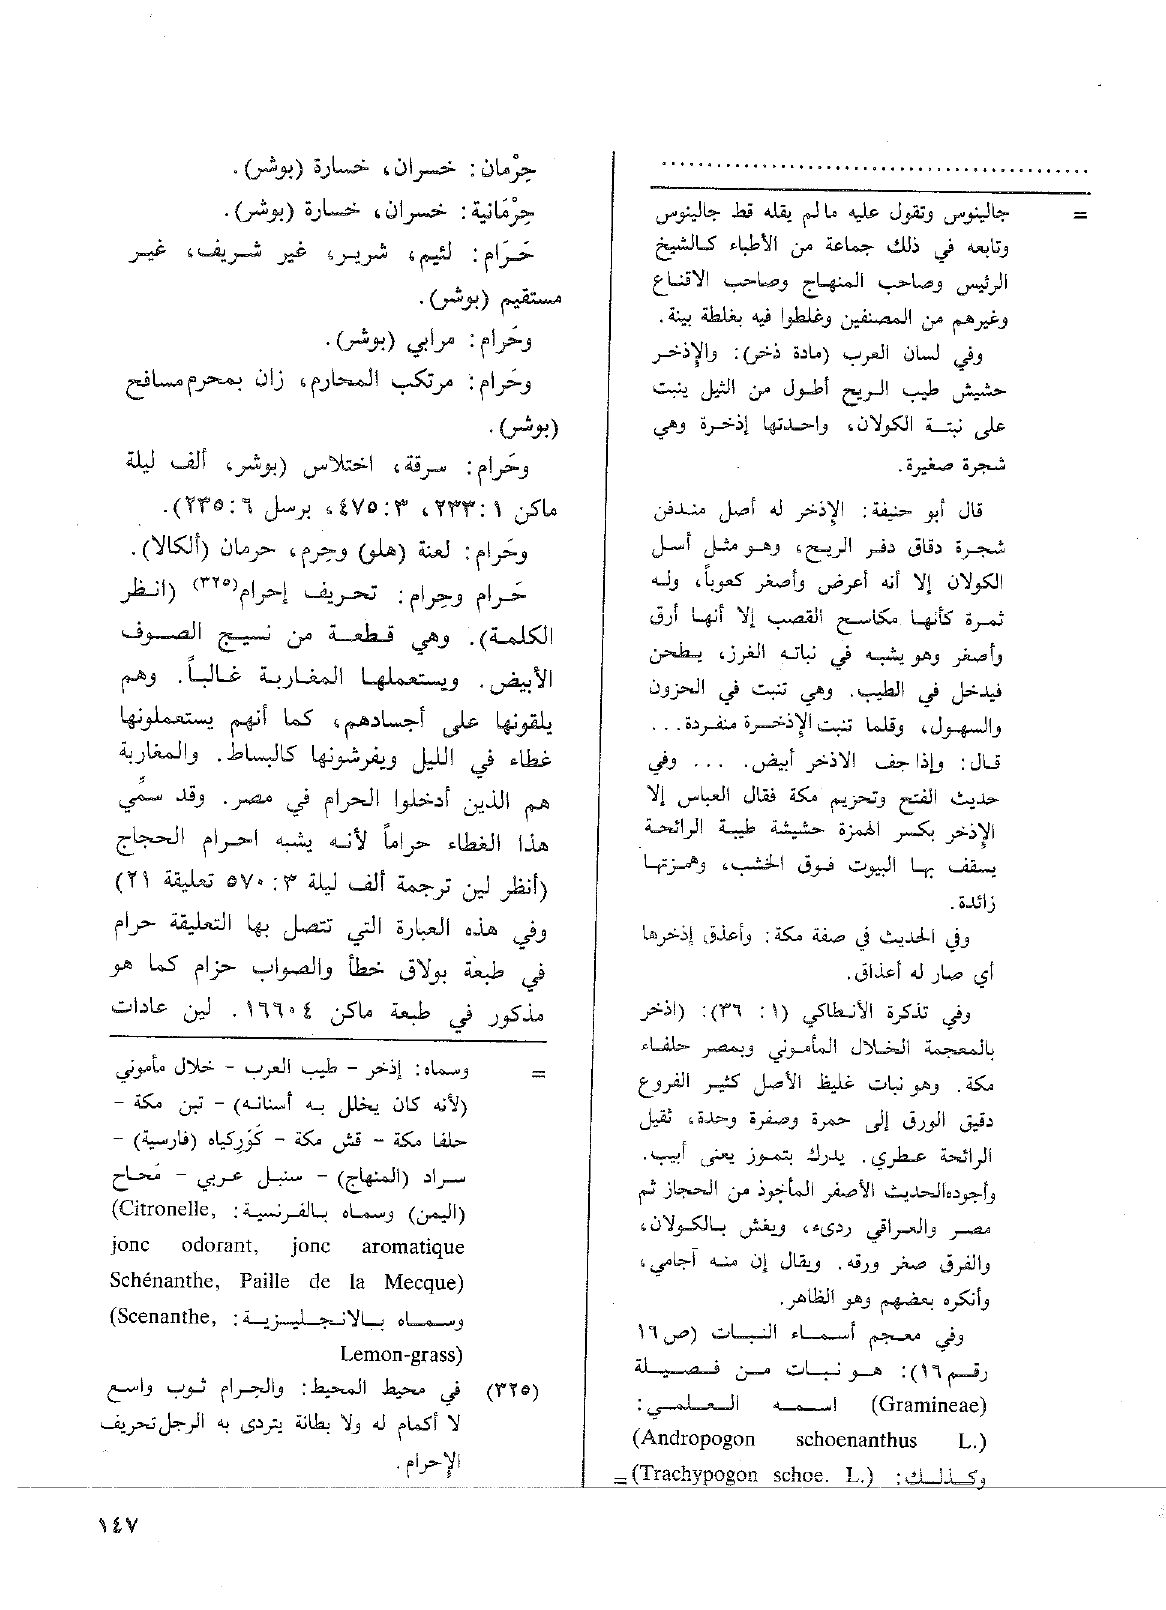 = جالينوس وتقول عليه مالم يقله قط جالينوس
وتابعه في ذلك جماعة من الأطباء كالشيخ
الرئيس وصاحب المنهاج وصاحب الاقناع
وغيرهم من المصنفين وغلطوا فيه بغلطة بينة.
وفي لسان العرب (مادة ذخر): والإذخر
حشيش طيب الريح أطول من الثيل ينبت
على نبتة الكولان، واحدتها إذخرة وهي
شجرة صغيرة.
قال أبو حنيفة: الإذخر له أصل مندفن
شجرة دقاق دفر الريح، وهو مثل أسل
الكولان إلا أنه أعرض وأصغر كعوباً، وله
ثمرة كأنها مكاسح القصب إلا أنها أرق
وأصغر وهو يشبه في نباته الغرز، يطحن
فيدخل في الطيب. وهي تنبت في الحزون
والسهول، وقلما تنبت الإذخرة منفردة...
قال: وإذا جف الاذخر أبيض. ... وفي
حديث الفتح وتحزيم مكة فقال العباس إلا
الإذخر بكسر الهمزة حشيشة طيبة الرائحة
يسقف بها البيوت فوق الخشب، وهمزتها
زائدة.
وفي الحديث في صفة مكة: وأعذق إذخرها
أي صار له أعذاق.
وفي تذكرة الأنطاكي (١ : ٣٦): (اذخر
بالمعجمة الخلال المأموني وبمصر حلفاء
مكة. وهو نبات غليظ الأصل كثير الفروع
دقيق الورق إلى حمرة وصفرة وحدة، ثقيل
الرائحة عطري. يدرك بتموز يعنى أبيب.
وأجوده الحديث الأصفر المأجوذ من الحجاز ثم
مصر والعراقي رديء، ويغش بالكولان،
والفرق صغر ورقه. ويقال إن منه آجامي،
وأنكره بعضهم وهو الظاهر.
وفي معجم أسماء النبات (ص ١٦
رقم ١٦): هو نبات من فصيلة
(Gramineae) اسمه العلمي:
(Andropogon schoenanthus L.)
وكذلك: (Trachypogon schoe. L.) =
حِرْمان: خسران، خسارة (بوشر).
حِرْمَانية: خسران، خسارة (بوشر).
حَرَام: لئيم، شرير، غير شريف، غير
مستقيم (بوشر).
وحَرام: مرابي (بوشر).
وحَرام: مرتكب المحارم، زان بمحرم مسافح
(بوشر).
وحَرام: سرقة، اختلاس (بوشر، ألف ليلة
ماكن ١: ٢٣٣، ٣: ٤٧٥، برسل ٦: ٢٣٥).
وحَرام: لعنة (هلو) وحِرم، حرمان (ألكالا).
حَرام وحِرام: تحريف إحرام(٣٢٥) (انظر
الكلمة). وهي قطعة من نسيج الصوف
الأبيض. ويستعملها المغاربة غالباً. وهم
يلقونها على أجسادهم، كما أنهم يستعملونها
غطاء في الليل ويفرشونها كالبساط. والمغاربة
هم الذين أدخلوا الحرام في مصر. وقد سمّي
هذا الغطاء حراماً لأنه يشبه احرام الحجاج
(أنظر لين ترجمة ألف ليلة ٣: ٥٧٠ تعليقة ٢١)
وفي هذه العبارة التي تتصل بها التعليقة حرام
في طبعة بولاق خطأ والصواب حزام كما هو
مذكور في طبعة ماكن ٤ ١٦٦٠. لين عادات
= وسماه: إذخر - طيب العرب - خلال مأموني
(لأنه كان يخلل به أسنانه) - تبن مكة -
حلفا مكة - قش مكة - كَوَركياه (فارسية) -
سراد (المنهاج) - سنبل عربي - مَحاح
(اليمن) وسماه بالفرنسية: (Citronelle,
jonc odorant, jonc aromatique
Schénanthe, Paille de la Mecque)
وسماه بالانجليزية: (Scenanthe,
Lemon-grass)
(٣٢٥) في محيط المحيط: والحِرام ثوب واسع
لا أكمام له ولا بطانة يتردى به الرجل تحريف
الإحرام.
١٤٧